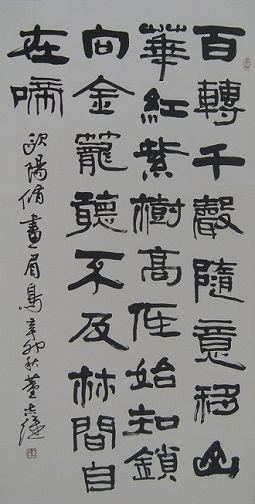 百轉千聲隨意移山
華紅紫樹高低始知鎖
向金籠聽不及林間自
在啼
歐陽脩畫眉鳥辛卯秋董